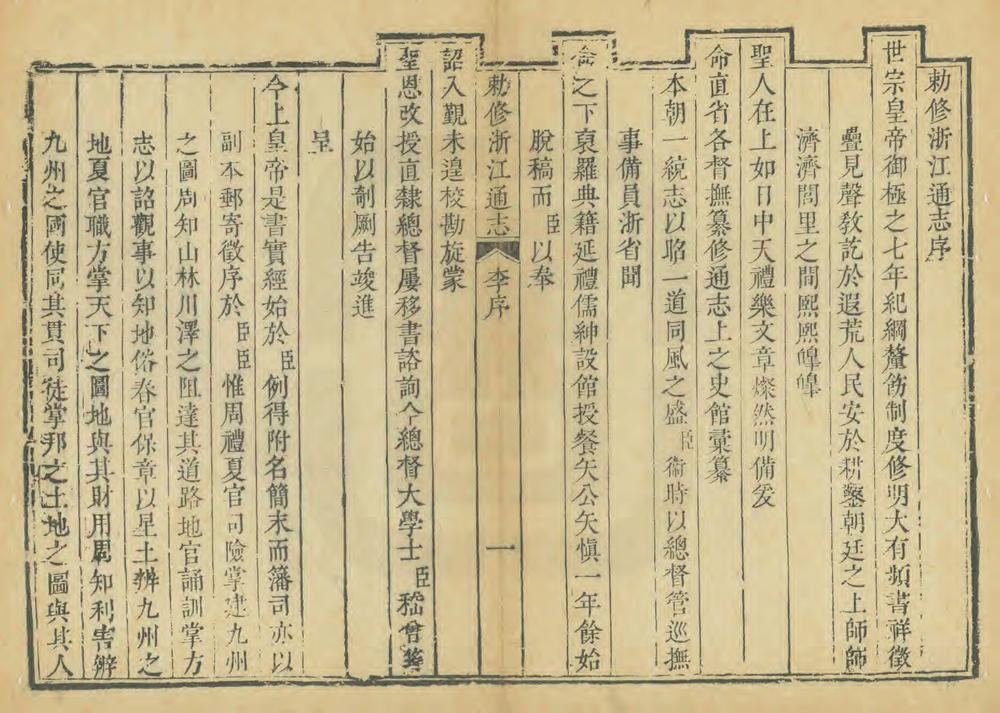 勅修浙江通志序
世宗皇帝御極之七年紀綱釐飭制度修明大有頻書祥徵
疊見聲敎訖於遐荒人民安於耕鑿朝廷之上師師
濟濟閭里之間熙熙皥皥
聖人在上如日中天禮樂文章燦然明備爰
命直省各督撫纂修通志上之史館彙纂
本朝一統志以昭一道同風之盛臣衞時以總督管巡撫
事備員浙省聞
命之下裒羅典籍延禮儒紳設館授餐矢公矢愼一年餘始
脫稿而臣以奉
勅修浙江通志 李序 一
詔入覲未遑校勘旋蒙
聖恩改授直隸總督屢移書諮詢今總督大學士臣嵇曾筠
始以剞劂告竣進
呈
今上皇帝是書實經始於臣例得附名簡末而藩司亦以
副本郵寄徵序於臣臣惟周禮夏官司險掌建九州
之圖周知山林川澤之阻達其道路地官誦訓掌方
志以詔觀事以知地俗春官保章以星土辨九州之
地夏官職方掌天下之圖地與其財用周知利害辨
九州之國使同其貫司徒掌邦之土地之圖與其人